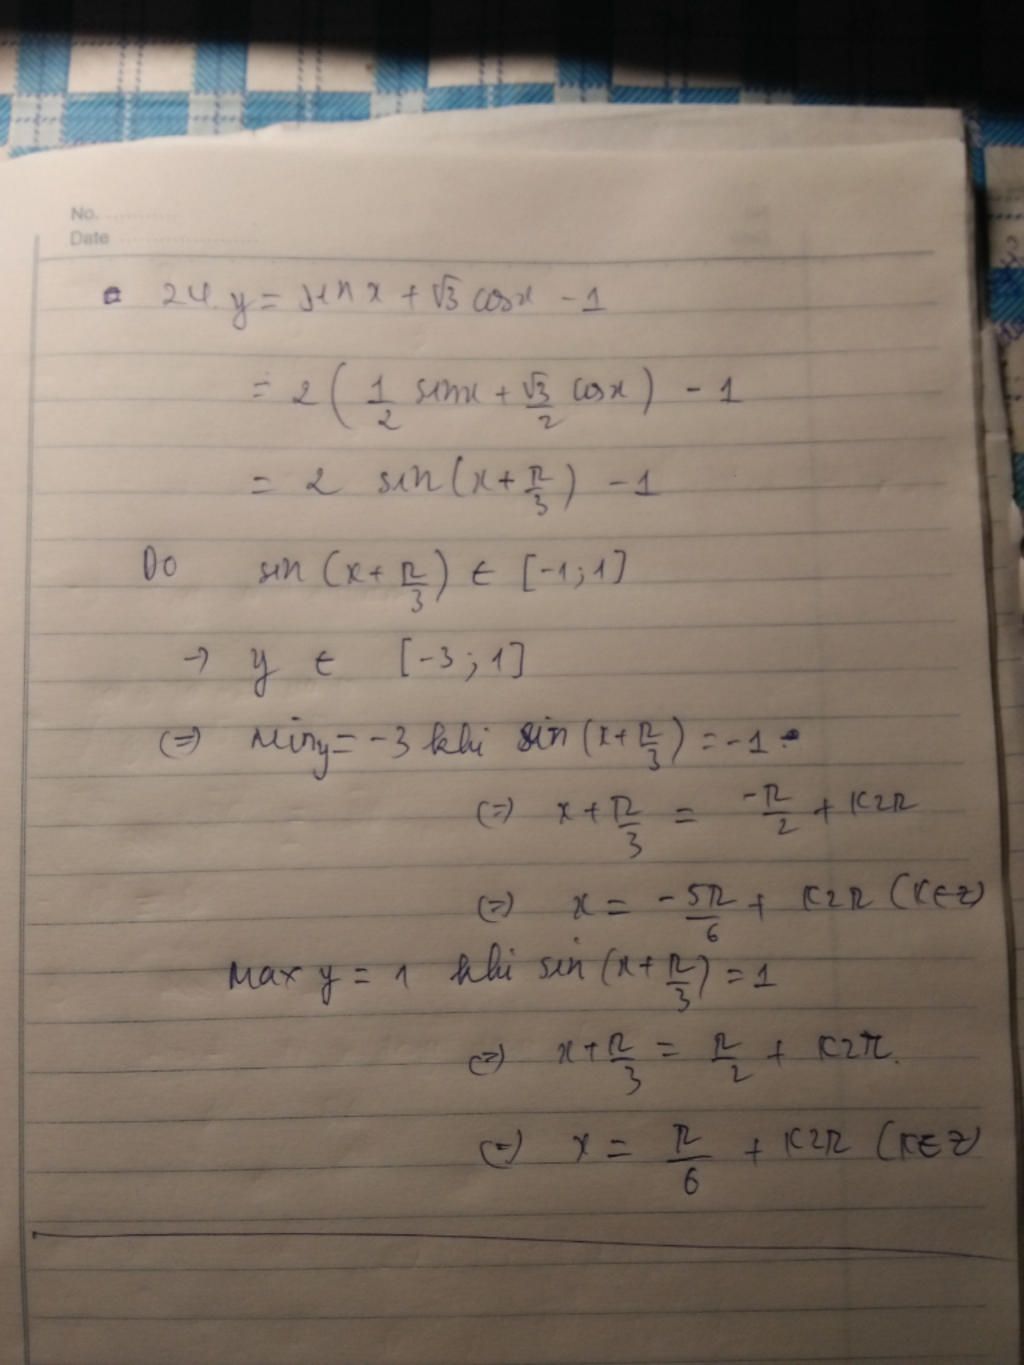 No. ............
Date ........................
24. y = sin x + √3 cosx - 1
= 2 ( 1/2 sinx + √3/2 cosx ) - 1
= 2 sin(x + π/3) - 1
Do sin (x + π/3) ∈ [-1; 1]
→ y ∈ [-3; 1]
(=) Miny = -3 khi sin (x + π/3) = -1
(=) x + π/3 = -π/2 + K2π
(=) x = -5π/6 + K2π (K∈Z)
Max y = 1 khi sin (x + π/3) = 1
(=) x + π/3 = π/2 + K2π.
(=) x = π/6 + K2π (K∈Z)